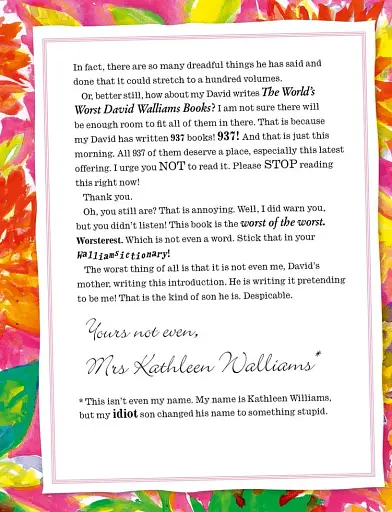 In fact, there are so many dreadful things he has said and
done that it could stretch to a hundred volumes.
Or, better still, how about my David writes The World's
Worst David Walliams Books? I am not sure there will
be enough room to fit all of them in there. That is because
my David has written 937 books! 937! And that is just this
morning. All 937 of them deserve a place, especially this latest
offering. I urge you NOT to read it. Please STOP reading
this right now!
Thank you.
Oh, you still are? That is annoying. Well, I did warn you,
but you didn't listen! This book is the worst of the worst.
Worsterest. Which is not even a word. Stick that in your
Walliamsictionary!
The worst thing of all is that it is not even me, David's
mother, writing this introduction. He is writing it pretending
to be me! That is the kind of son he is. Despicable.
Yours not even,
Mrs Kathleen Walliams*
* This isn't even my name. My name is Kathleen Williams,
but my idiot son changed his name to something stupid.